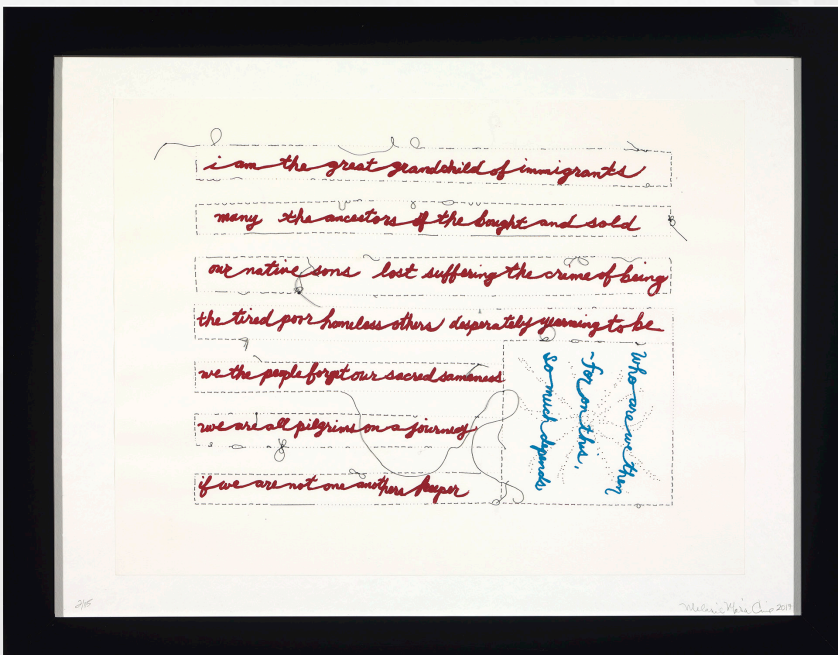 i am the great grandchild of immigrants
many the ancestors of the bought and sold
our native sons lost suffering the crime of being
the tired poor homeless others desperately yearning to be
we the people forget our sacred sameness
we are all pilgrims on a journey
if we are not one anothers keeper
Who are we then
-for on this,
so much depends
2/15
2019